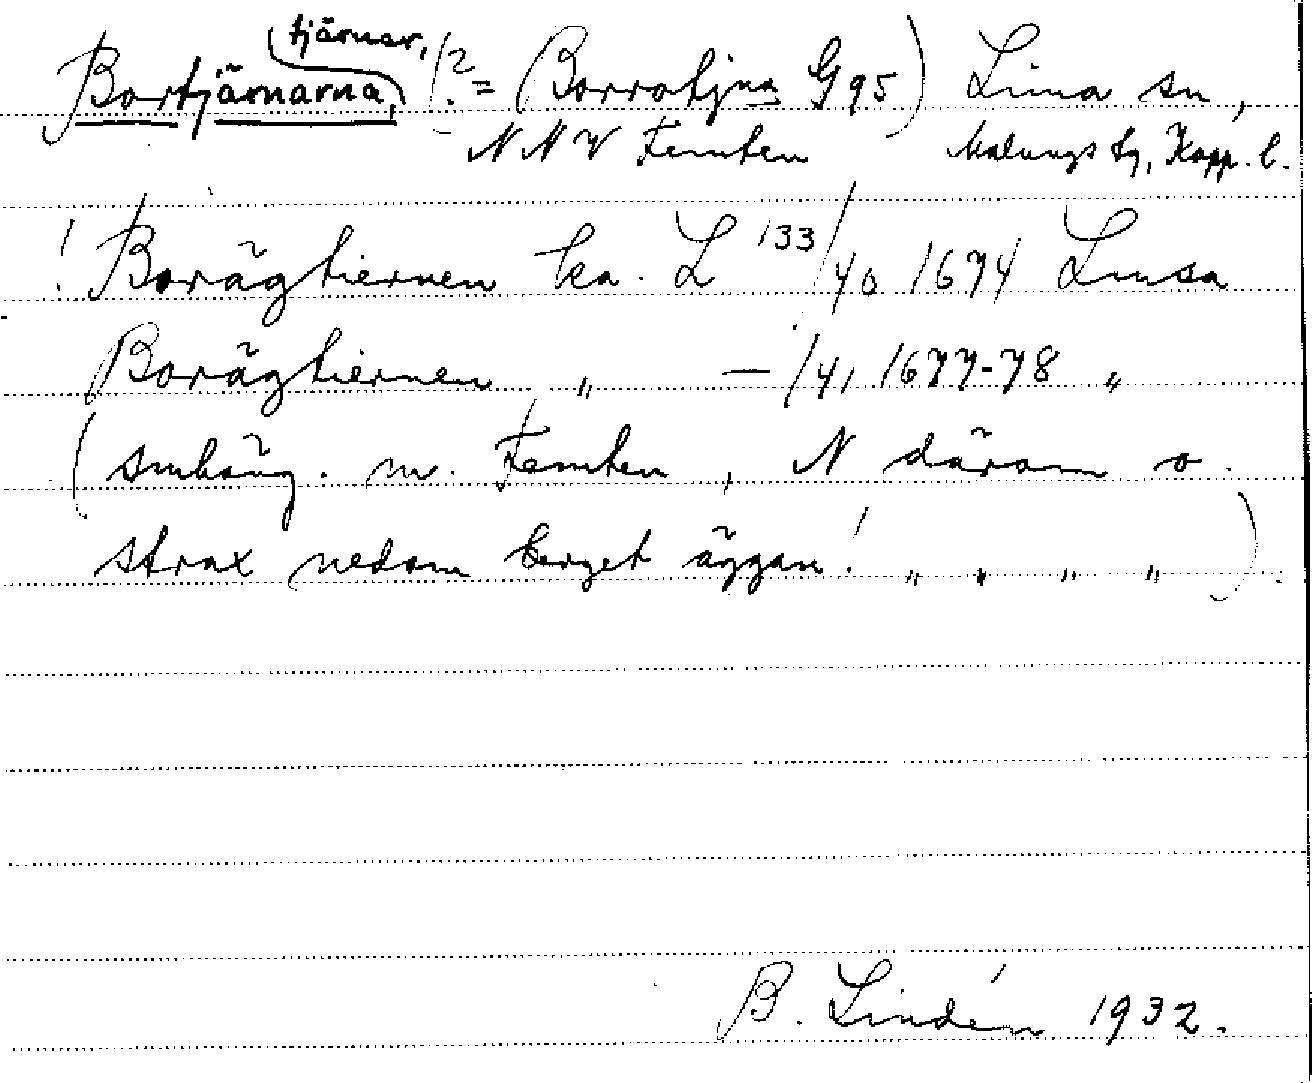 tjärnar,
Bortjärnarna, (?= (Borrotjna G95) Lima sn,
NNV Femten Malungs tg, Kopp. l.
!Borägtiernen ka. L 133/40 1674 Limsa
Borägtiernen „ — /41 1677-78 „
(smhäng. m. Femten, N därom o.
strax nedom berget äggan! „ „ „ „ ).
B. Lindén 1932.